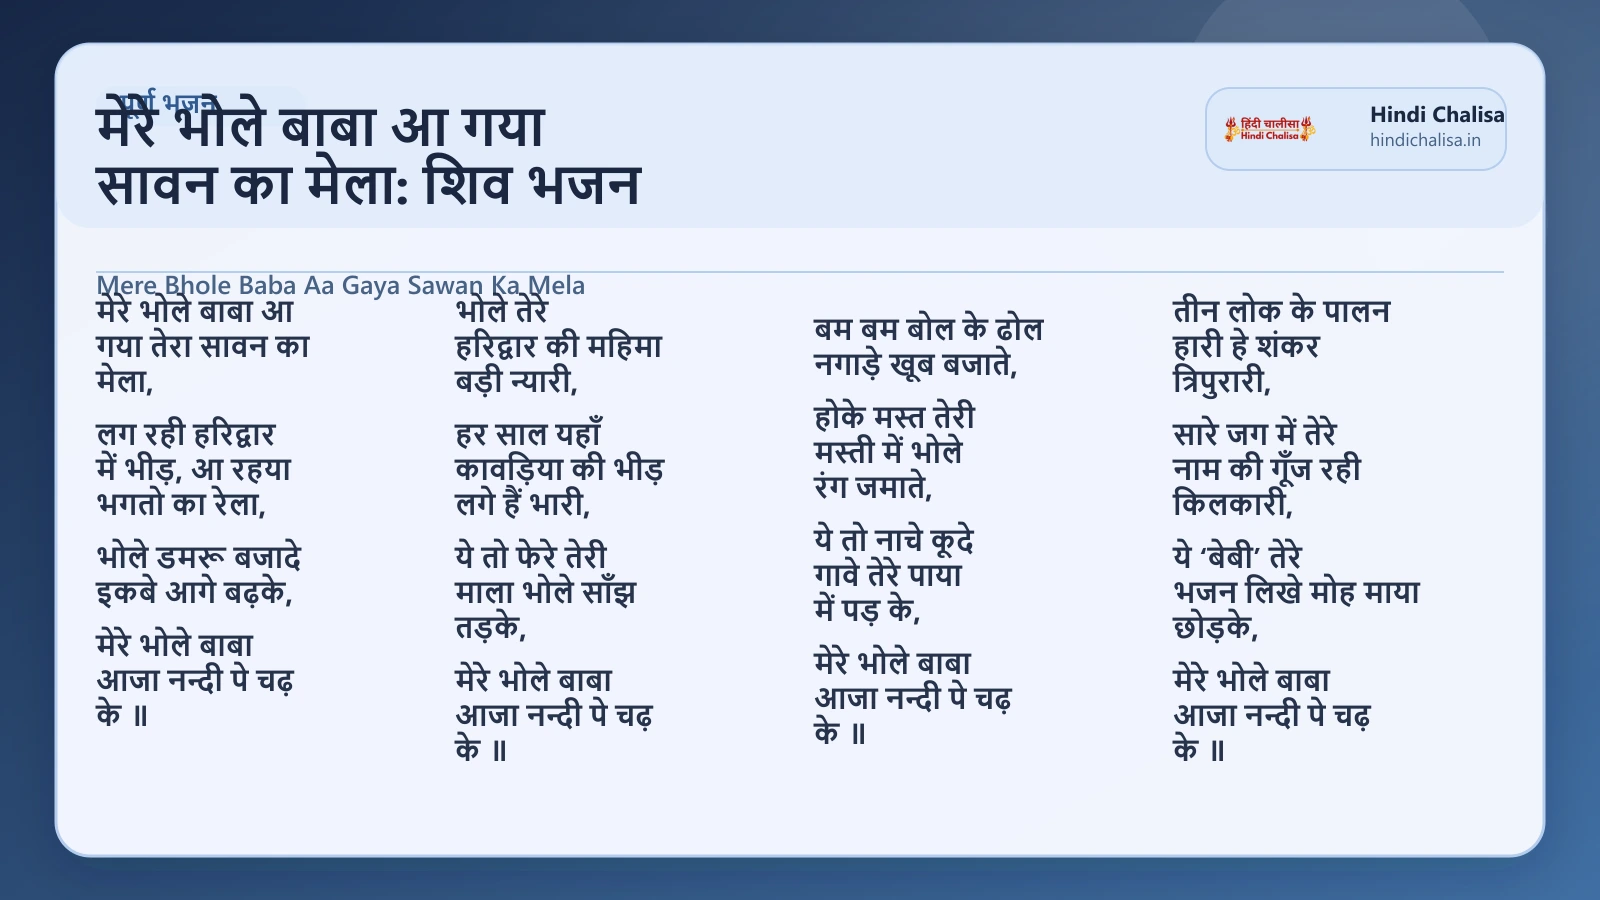 पूर्ण भजन
मेरे भोले बाबा आ गया
सावन का मेला: शिव भजन
हिंदी चालीसा
Hindi Chalisa
Hindi Chalisa
hindichalisa.in
Mere Bhole Baba Aa Gaya Sawan Ka Mela
मेरे भोले बाबा आ
गया तेरा सावन का
मेला,
लग रही हरिद्वार
में भीड़, आ रहया
भगतो का रेला,
भोले डमरू बजादे
इकबे आगे बढ़के,
मेरे भोले बाबा
आजा नन्दी पे चढ़
के ॥
भोले तेरे
हरिद्वार की महिमा
बड़ी न्यारी,
हर साल यहाँ
कावड़िया की भीड़
लगे हैं भारी,
ये तो फेरे तेरी
माला भोले साँझ
तड़के,
मेरे भोले बाबा
आजा नन्दी पे चढ़
के ॥
बम बम बोल के ढोल
नगाड़े खूब बजाते,
होके मस्त तेरी
मस्ती में भोले
रंग जमाते,
ये तो नाचे कूदे
गावे तेरे पाया
में पड़ के,
मेरे भोले बाबा
आजा नन्दी पे चढ़
के ॥
तीन लोक के पालन
हारी हे शंकर
त्रिपुरारी,
सारे जग में तेरे
नाम की गूँज रही
किलकारी,
ये ‘बेबी’ तेरे
भजन लिखे मोह माया
छोड़के,
मेरे भोले बाबा
आजा नन्दी पे चढ़
के ॥